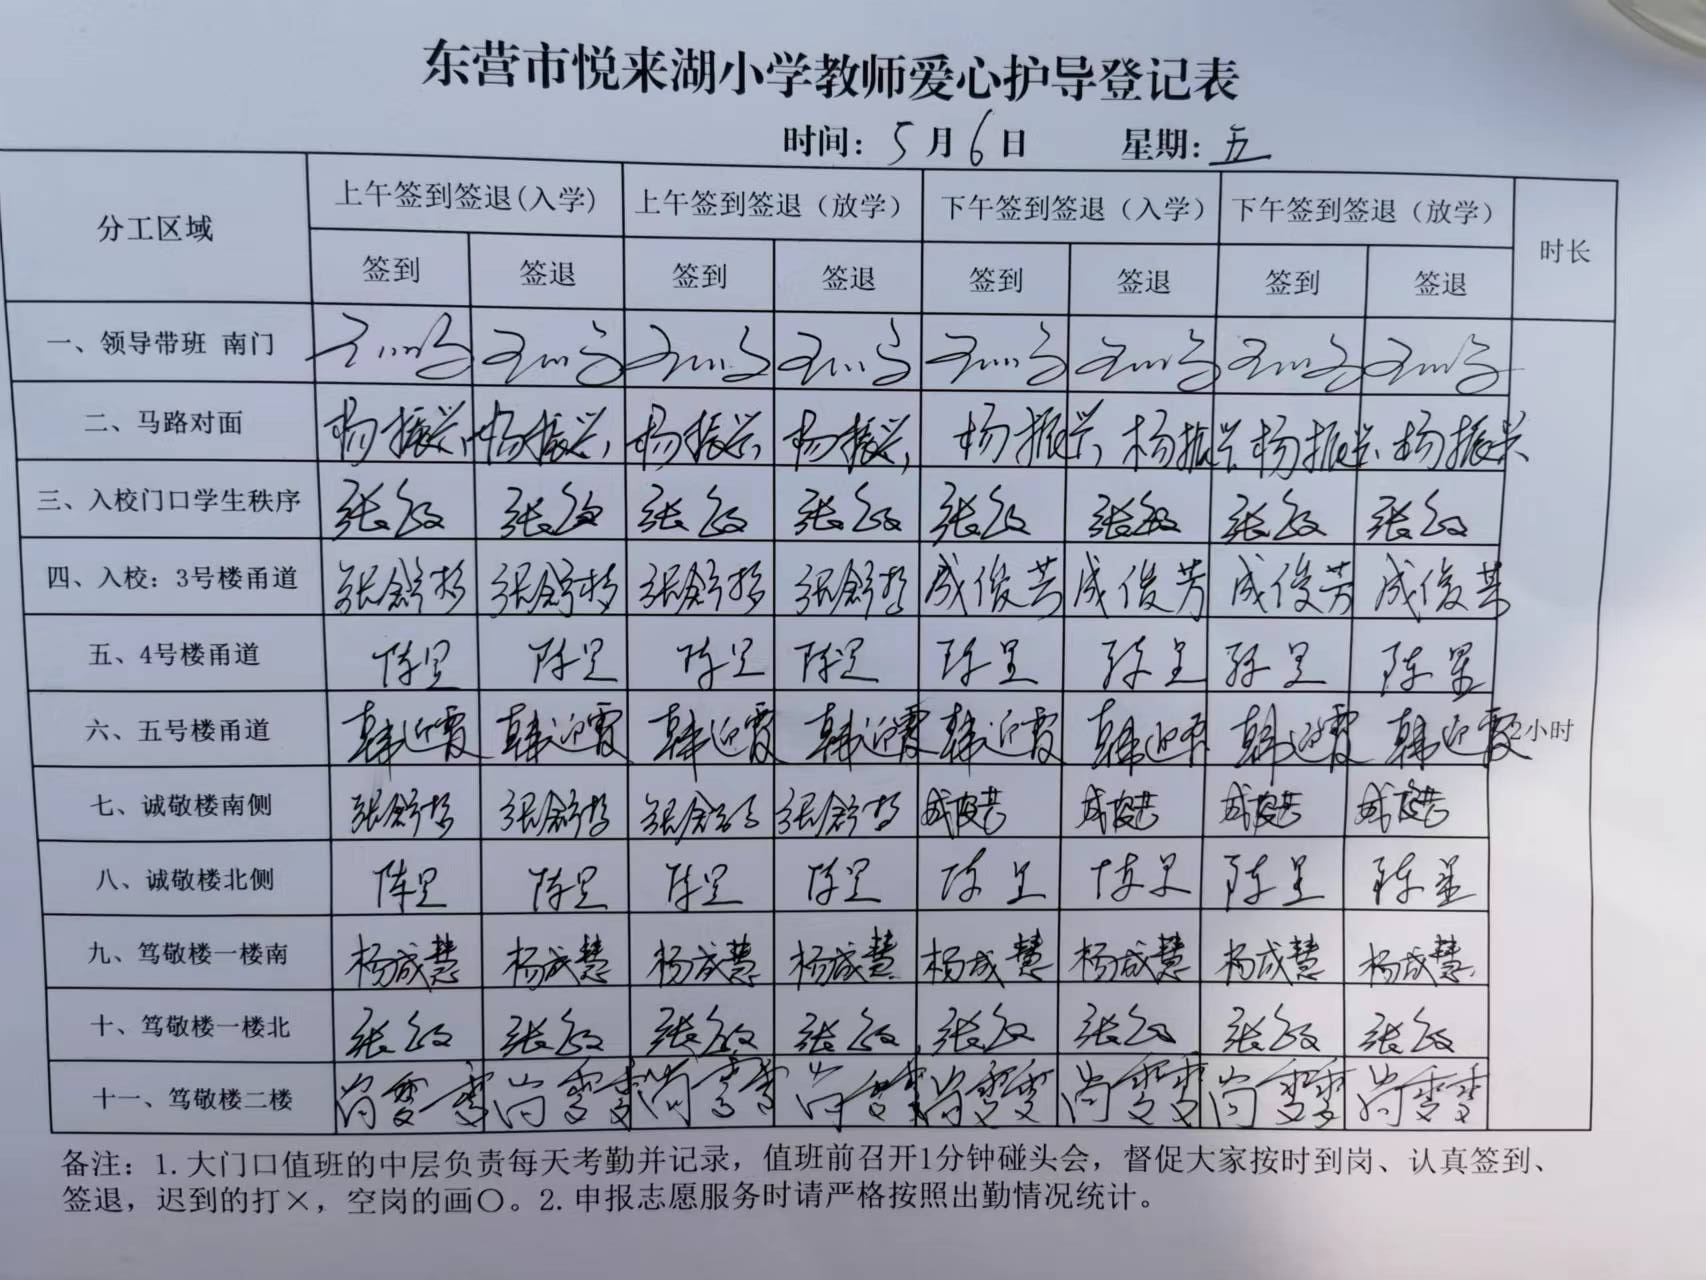 东营市悦来湖小学教师爱心护导登记表
时间：5月6日 星期：五
分工区域 上午签到签退(入学) 上午签到签退（放学） 下午签到签退（入学） 下午签到签退（放学） 时长
签到 签退 签到 签退 签到 签退 签到 签退
一、领导带班 南门
二、马路对面 杨振兴 杨振兴 杨振兴 杨振兴 杨振兴 杨振兴 杨振兴 杨振兴
三、入校门口学生秩序 张敏 张敏 张敏 张敏 张敏 张敏 张敏 张敏
四、入校：3号楼甬道 张舒杨 张舒杨 张舒杨 张舒杨 成俊芳 成俊芳 成俊芳 成俊芳
五、4号楼甬道 陈星 陈星 陈星 陈星 陈星 陈星 陈星 陈星
六、五号楼甬道 韩迎霞 韩迎霞 韩迎霞 韩迎霞 韩迎霞 韩迎霞 韩迎霞 韩迎霞 2小时
七、诚敬楼南侧 张舒杨 张舒杨 张舒杨 张舒杨 成俊芳 成俊芳 成俊芳 成俊芳
八、诚敬楼北侧 陈星 陈星 陈星 陈星 陈星 陈星 陈星 陈星
九、笃敬楼一楼南 杨成慧 杨成慧 杨成慧 杨成慧 杨成慧 杨成慧 杨成慧 杨成慧
十、笃敬楼一楼北 张敏 张敏 张敏 张敏 张敏 张敏 张敏 张敏
十一、笃敬楼二楼 尚雯雯 尚雯雯 尚雯雯 尚雯雯 尚雯雯 尚雯雯 尚雯雯 尚雯雯
备注：1.大门口值班的中层负责每天考勤并记录，值班前召开1分钟碰头会，督促大家按时到岗、认真签到、
签退，迟到的打×，空岗的画〇。2.申报志愿服务时请严格按照出勤情况统计。